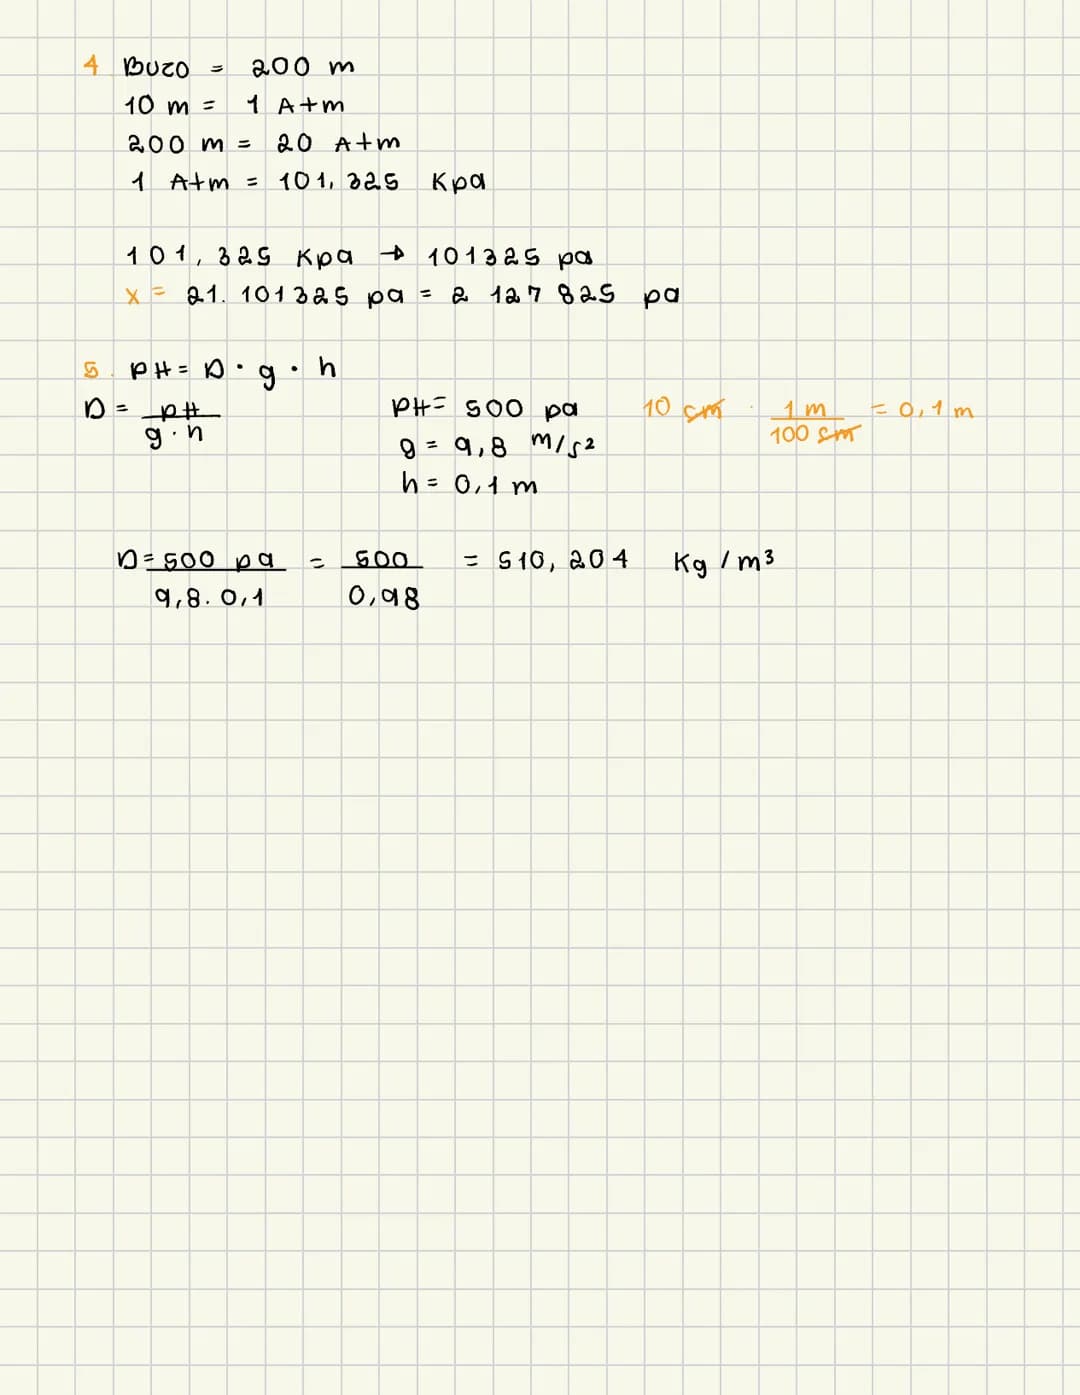 4 Buzo = 200 m
10 m = 1 Atm
200 m = 20 Atm
1 Atm = 101,325 Kpa
101,325 Kpa → 101325 pa
x = 21. 101325 pa = 2 127 825 pa
5. PH = D · g · h
D = pH / g · h
PH = 500 pa
10 cm · 1 m / 100 cm = 0,1 m
g = 9,8 m/s2
h = 0,1 m
D = 500 pa / 9,8 . 0,1 = 500 / 0,98 = 510,204 Kg/m³